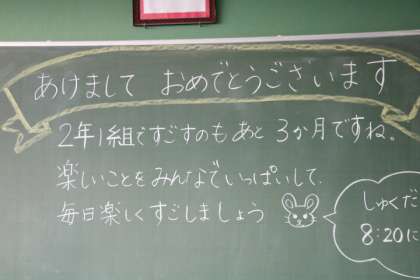 あけまして おめでとうございます
2年1組ですごすのもあと 3か月ですね。
楽しいことをみんなでいっぱいして、
毎日楽しくすごしましょう
しゅくだ
8:20に